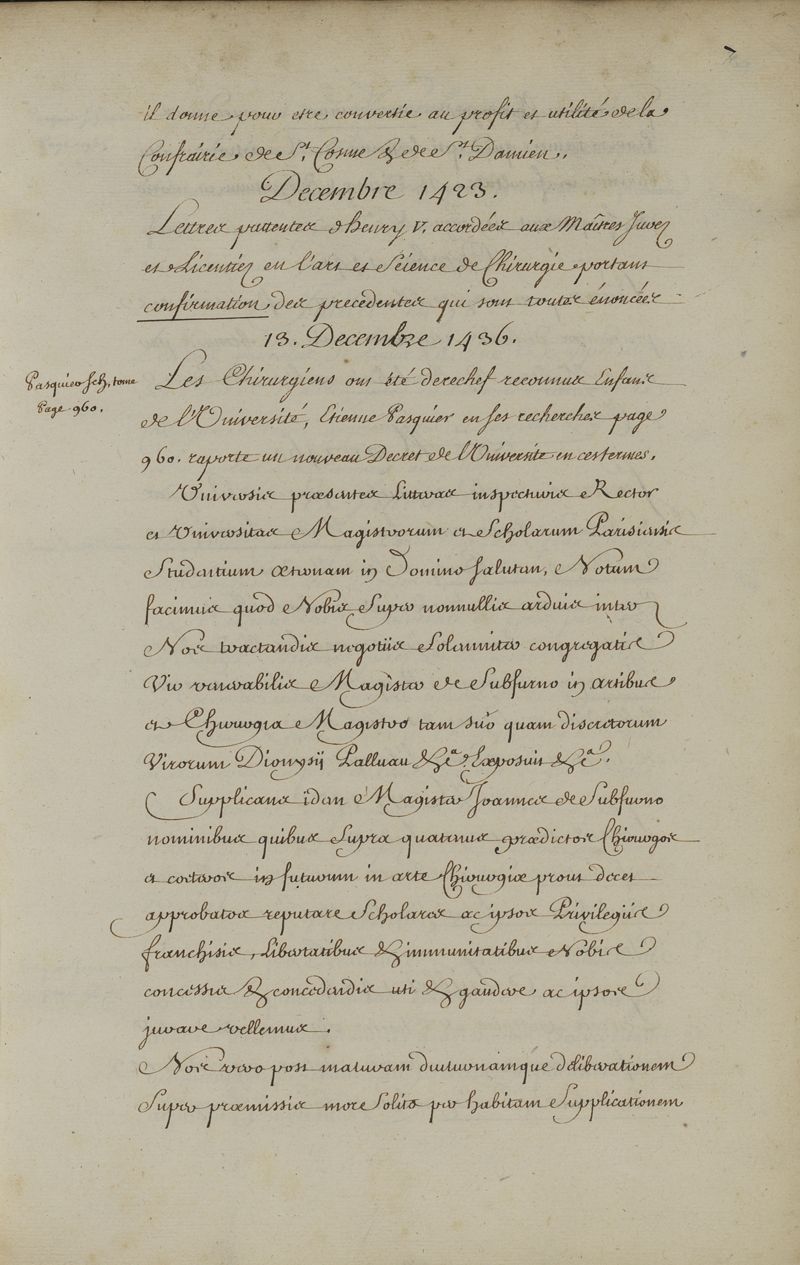 7
il donne pour estre convertie au profit et utilité de la
Confrairie de St. Cosme & de St. Damien.
Decembre 1423.
Lettres patentes d'henry V. accordées aux Maîtres Jurez
et Licentiez en l'art et Science de Chirurgie portant
confirmation des precedentes qui sont toutes énoncées
13. Decembre 1436.
Pasquier tome
Page 960.
Les Chirurgiens ont été derechef reconnus Enfans
de l'Université, Etienne Pasquier en ses recherches page
960. raporte un nouveau Decret de l'Université en ces termes.
Universis præsentes Litteras inspecturis Rector
et Universitas Magistrorum et Scholarum Parisiensis
Studentium æternam in Domino salutem, Notum
facimus quod Nobis Super nonnullis arduis inter
Nos tractandis negotiis Solemniter congregatis
Vir venerabilis Magister de Subfurno in artibus
et Chirurgia Magister tam suo quam discretorum
Virorum Dionysii Palluau &ca. Exposuit &ca.
Supplicans idem Magister Joannes de Subfurno
nominibus quibus Supra quatenus prædictos Chirurgos
et cæteros in futurum in arte Chirurgiæ prout decet
approbatos reputare Scholares ac ipsos Privilegiis
franchisis, Libertatibus & immunitatibus Nobis
concessis & concedendis uti & gaudere ac ipsos
juvare vellemus.
Nos vero post maturam diuturnamque deliberationem
Super præmissis more Solito per habitam Supplicationem